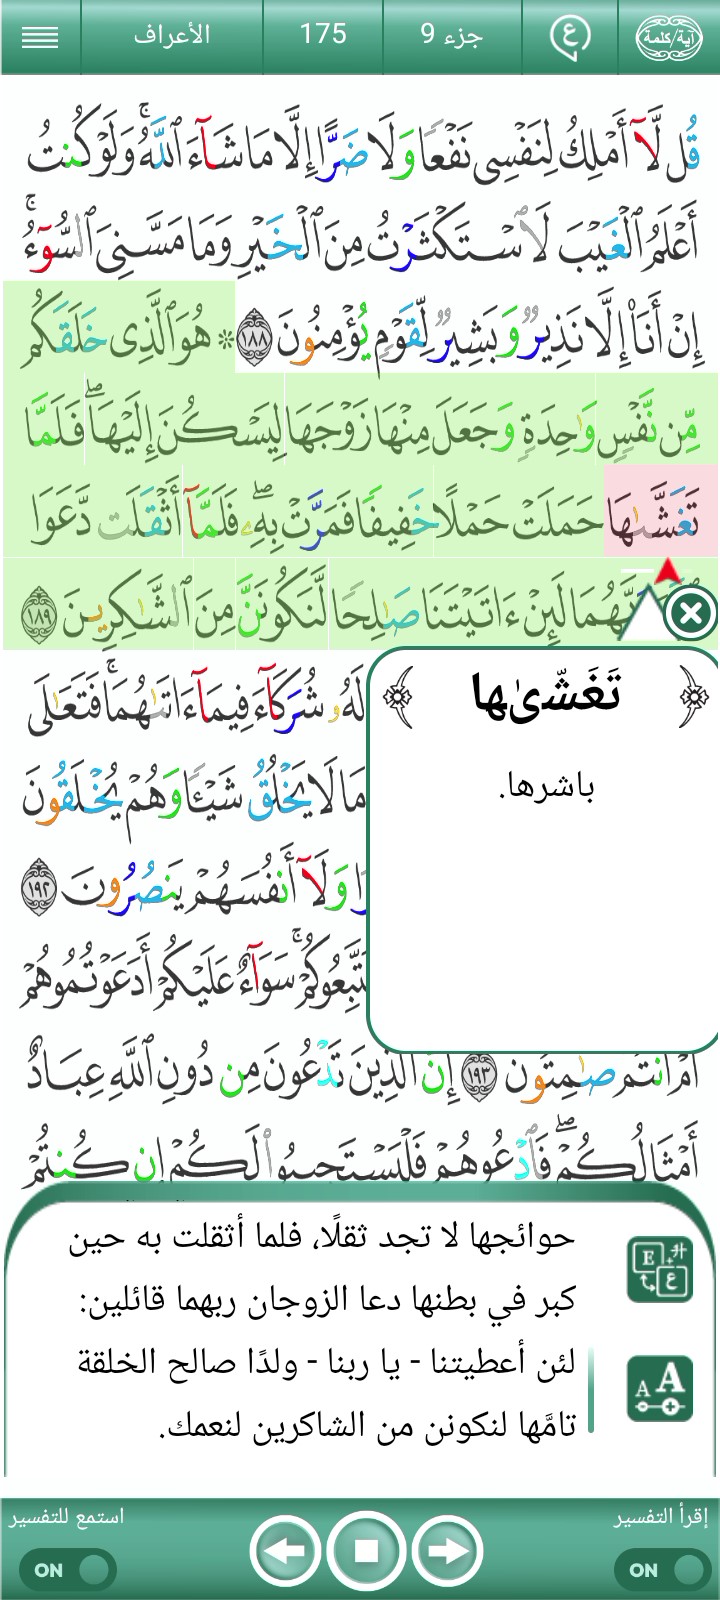 آية/كلمة
ع
جزء 9
175
الأعراف
قُل لَّآ أَمْلِكُ لِنَفْسِى نَفْعًا وَلَا ضَرًّا إِلَّا مَا شَآءَ ٱللَّهُ ۚ وَلَوْ كُنتُ
أَعْلَمُ ٱلْغَيْبَ لَٱسْتَكْثَرْتُ مِنَ ٱلْخَيْرِ وَمَا مَسَّنِىَ ٱلسُّوٓءُ ۚ
إِنْ أَنَا۠ إِلَّا نَذِيرٌ وَبَشِيرٌ لِّقَوْمٍ يُؤْمِنُونَ ١٨٨ ۞ هُوَ ٱلَّذِى خَلَقَكُم
مِّن نَّفْسٍ وَٰحِدَةٍ وَجَعَلَ مِنْهَا زَوْجَهَا لِيَسْكُنَ إِلَيْهَا ۖ فَلَمَّا
تَغَشَّىٰهَا حَمَلَتْ حَمْلًا خَفِيفًا فَمَرَّتْ بِهِۦ ۖ فَلَمَّآ أَثْقَلَت دَّعَوَا
رَبَّهُمَا لَئِنْ ءَاتَيْتَنَا صَٰلِحًا لَّنَكُونَنَّ مِنَ ٱلشَّٰكِرِينَ ١٨٩
لَهُۥ شُرَكَآءَ فِيمَآ ءَاتَىٰهُمَا ۚ فَتَعَٰلَى
مَا لَا يَخْلُقُ شَيْـًٔا وَهُمْ يُخْلَقُونَ
وَلَآ أَنفُسَهُمْ يَنصُرُونَ ١٩٢
يَتَّبِعُوكُمْ ۚ سَوَآءٌ عَلَيْكُمْ أَدَعَوْتُمُوهُمْ
أَمْ أَنتُمْ صَٰمِتُونَ ١٩٣ إِنَّ ٱلَّذِينَ تَدْعُونَ مِن دُونِ ٱللَّهِ عِبَادٌ
أَمْثَالُكُمْ ۖ فَٱدْعُوهُمْ فَلْيَسْتَجِيبُوا۟ لَكُمْ إِن كُنتُمْ
تَغَشّىٰها
باشرها.
حوائجها لا تجد ثقلًا، فلما أثقلت به حين
كبر في بطنها دعا الزوجان ربهما قائلين:
لئن أعطيتنا - يا ربنا - ولدًا صالح الخلقة
تامَّها لنكونن من الشاكرين لنعمك.
E
ع
A A
إقرأ التفسير
استمع للتفسير
ON
ON